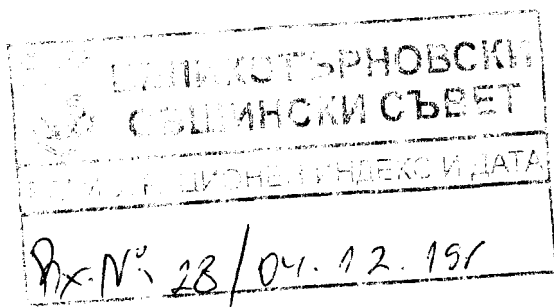 ВЕЛИКОТЪРНОВСКИ
ОБЩИНСКИ СЪВЕТ
РЕГИСТРАЦИОНЕН ИНДЕКС И ДАТА
Вх. № 28/04.12.19г